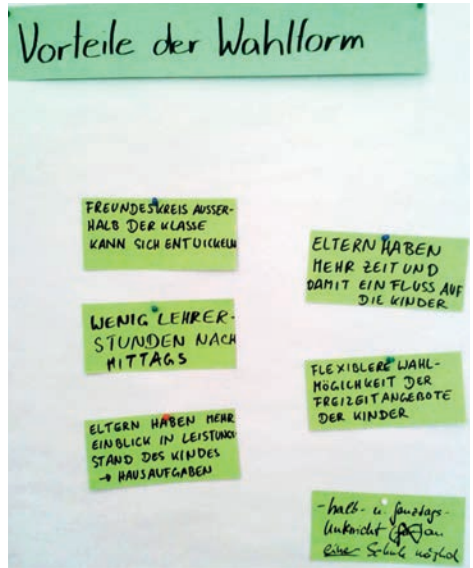 Vorteile der Wahlform
FREUNDESKREIS AUSSER-
HALB DER KLASSE
KANN SICH ENTWICKELN
WENIG LEHRER-
STUNDEN NACH
MITTAGS
ELTERN HABEN MEHR
EINBLICK IN LEISTUNGS
STAND DES KINDES
→ HAUSAUFGABEN
ELTERN HABEN
MEHR ZEIT UND
DAMIT EINFLUSS AUF
DIE KINDER
FLEXIBLERE WAHL-
MÖGLICHKEIT DER
FREIZEITANGEBOTE
DER KINDER
- halb- u. ganztags-
Unterricht an
einer Schule möglich